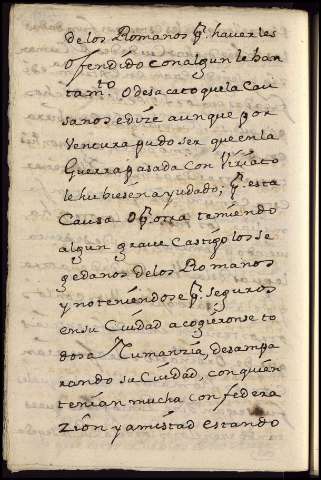 de los Romanos q̃. haverles
ofendido con algun leban
tam.to o desacato que la Cau
sa no se dize aunque por
ventura pudo ser que en la
Guerra pasada con Viriato
le hubiesen ayudado; q̃. esta
Causa o q̃. otra teniendo
algun grave Castigo los se
gedanos de los Romanos
y no teniendose q̃. seguros
en su Ciudad acogieronse to
dos a Numanzia, desampa
rando su Ciudad, con quien
tenian mucha confedera
zion y amistad estando